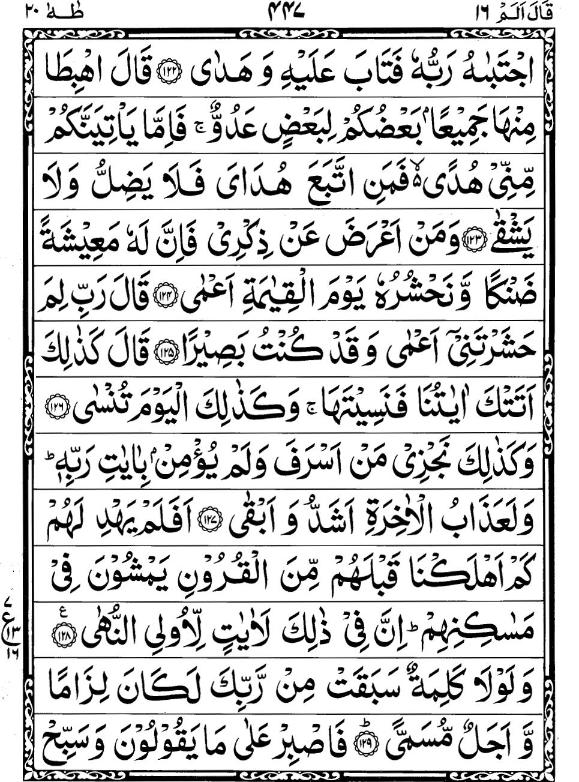 قَالَ اَلَمْ ١٦ ٤٤٧ طٰهٰ ٢٠
اجْتَبٰىهُ رَبُّهٗ فَتَابَ عَلَيْهِ وَ هَدٰى ﴿١٢٢﴾ قَالَ اهْبِطَا
مِنْهَا جَمِيْعًۢا بَعْضُكُمْ لِبَعْضٍ عَدُوٌّ ۚ فَاِمَّا يَاْتِيَنَّكُمْ
مِّنِّيْ هُدًى ۙ۬ فَمَنِ اتَّبَعَ هُدَايَ فَلَا يَضِلُّ وَلَا
يَشْقٰى ﴿١٢٣﴾ وَمَنْ اَعْرَضَ عَنْ ذِكْرِيْ فَاِنَّ لَهٗ مَعِيْشَةً
ضَنْكًا وَّ نَحْشُرُهٗ يَوْمَ الْقِيٰمَةِ اَعْمٰى ﴿١٢٤﴾ قَالَ رَبِّ لِمَ
حَشَرْتَنِيْٓ اَعْمٰى وَ قَدْ كُنْتُ بَصِيْرًا ﴿١٢٥﴾ قَالَ كَذٰلِكَ
اَتَتْكَ اٰيٰتُنَا فَنَسِيْتَهَا ۚ وَ كَذٰلِكَ الْيَوْمَ تُنْسٰى ﴿١٢٦﴾
وَ كَذٰلِكَ نَجْزِيْ مَنْ اَسْرَفَ وَلَمْ يُؤْمِنْۢ بِاٰيٰتِ رَبِّهٖ ؕ
وَ لَعَذَابُ الْاٰخِرَةِ اَشَدُّ وَ اَبْقٰى ﴿١٢٧﴾ اَفَلَمْ يَهْدِ لَهُمْ
كَمْ اَهْلَكْنَا قَبْلَهُمْ مِّنَ الْقُرُوْنِ يَمْشُوْنَ فِيْ
مَسٰكِنِهِمْ ؕ اِنَّ فِيْ ذٰلِكَ لَاٰيٰتٍ لِّاُولِي النُّهٰى ﴿١٢٨﴾ ع
٧ ع ١٣ ١٦
وَ لَوْلَا كَلِمَةٌ سَبَقَتْ مِنْ رَّبِّكَ لَكَانَ لِزَامًا
وَّ اَجَلٌ مُّسَمًّى ﴿١٢٩﴾ ؕ فَاصْبِرْ عَلٰى مَا يَقُوْلُوْنَ وَ سَبِّحْ